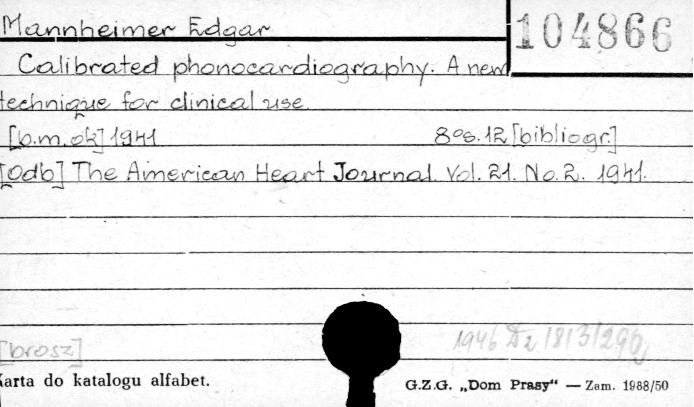 Mannheimer Edgar
104866
Calibrated phonocardiography. A new
technique for clinical use.
[b.m.ok] 1941 8os. 12 [bibliogr.]
[Odb] The American Heart Journal. Vol. 21. No. 2. 1941.
[brosz]
1946 1813/290
Karta do katalogu alfabet.
G.Z.G. „Dom Prasy" — Zam. 1988/50